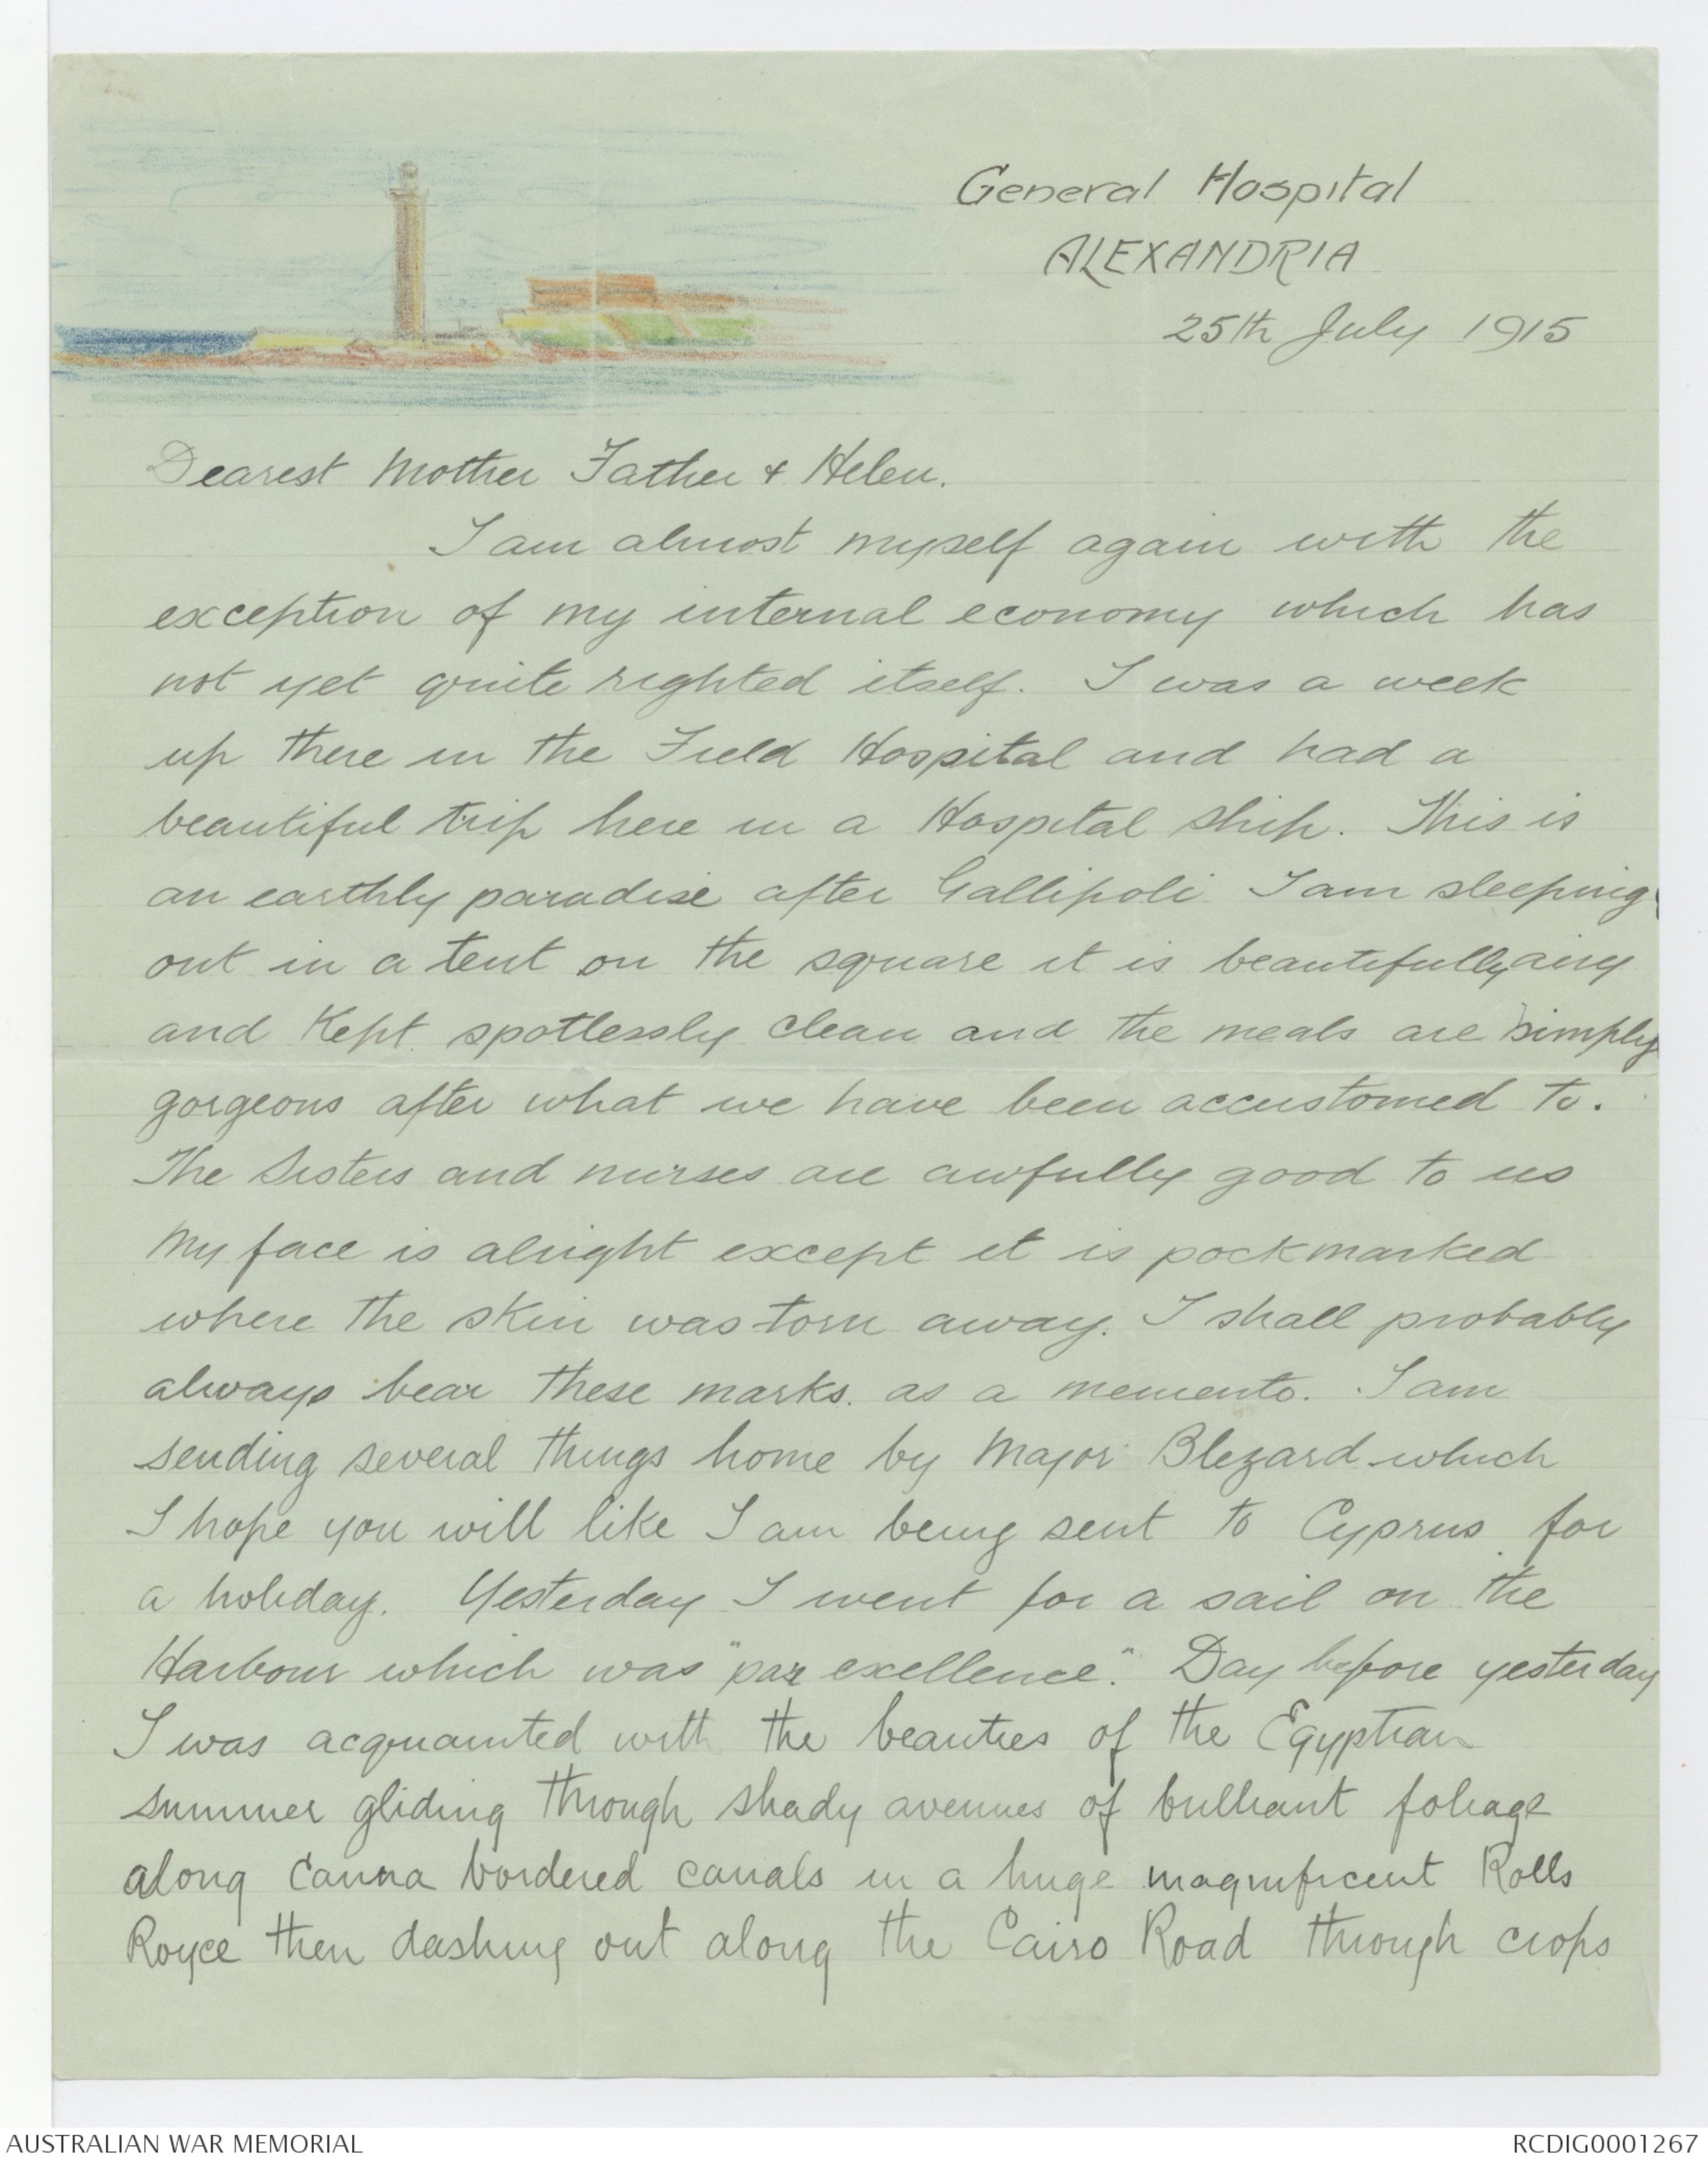 General Hospital
ALEXANDRIA
25th July 1915
Dearest Mother Father & Helen.
I am almost myself again with the
exception of my internal economy which has
not yet quite righted itself. I was a week
up there in the Field Hospital and had a
beautiful trip here in a Hospital ship. This is
an earthly paradise after Gallipoli I am sleeping
out in a tent on the square it is beautifully airy
and kept spotlessly clean and the meals are simply
gorgeous after what we have been accustomed to.
The Sisters and nurses are awfully good to us
My face is alright except it is pockmarked
where the skin was torn away. I shall probably
always bear these marks. as a memento. I am
sending several things home by Major Blezard which
I hope you will like I am being sent to Cyprus for
a holiday. Yesterday I went for a sail on the
Harbour which was "par exellence". Day before yesterday
I was acquainted with the beauties of the Egyptian
summer gliding through shady avenues of brilliant foliage
along Canna bordered canals in a huge magnificent Rolls
Royce then dashing out along the Cairo Road through crops
AUSTRALIAN WAR MEMORIAL
RCDIG0001267